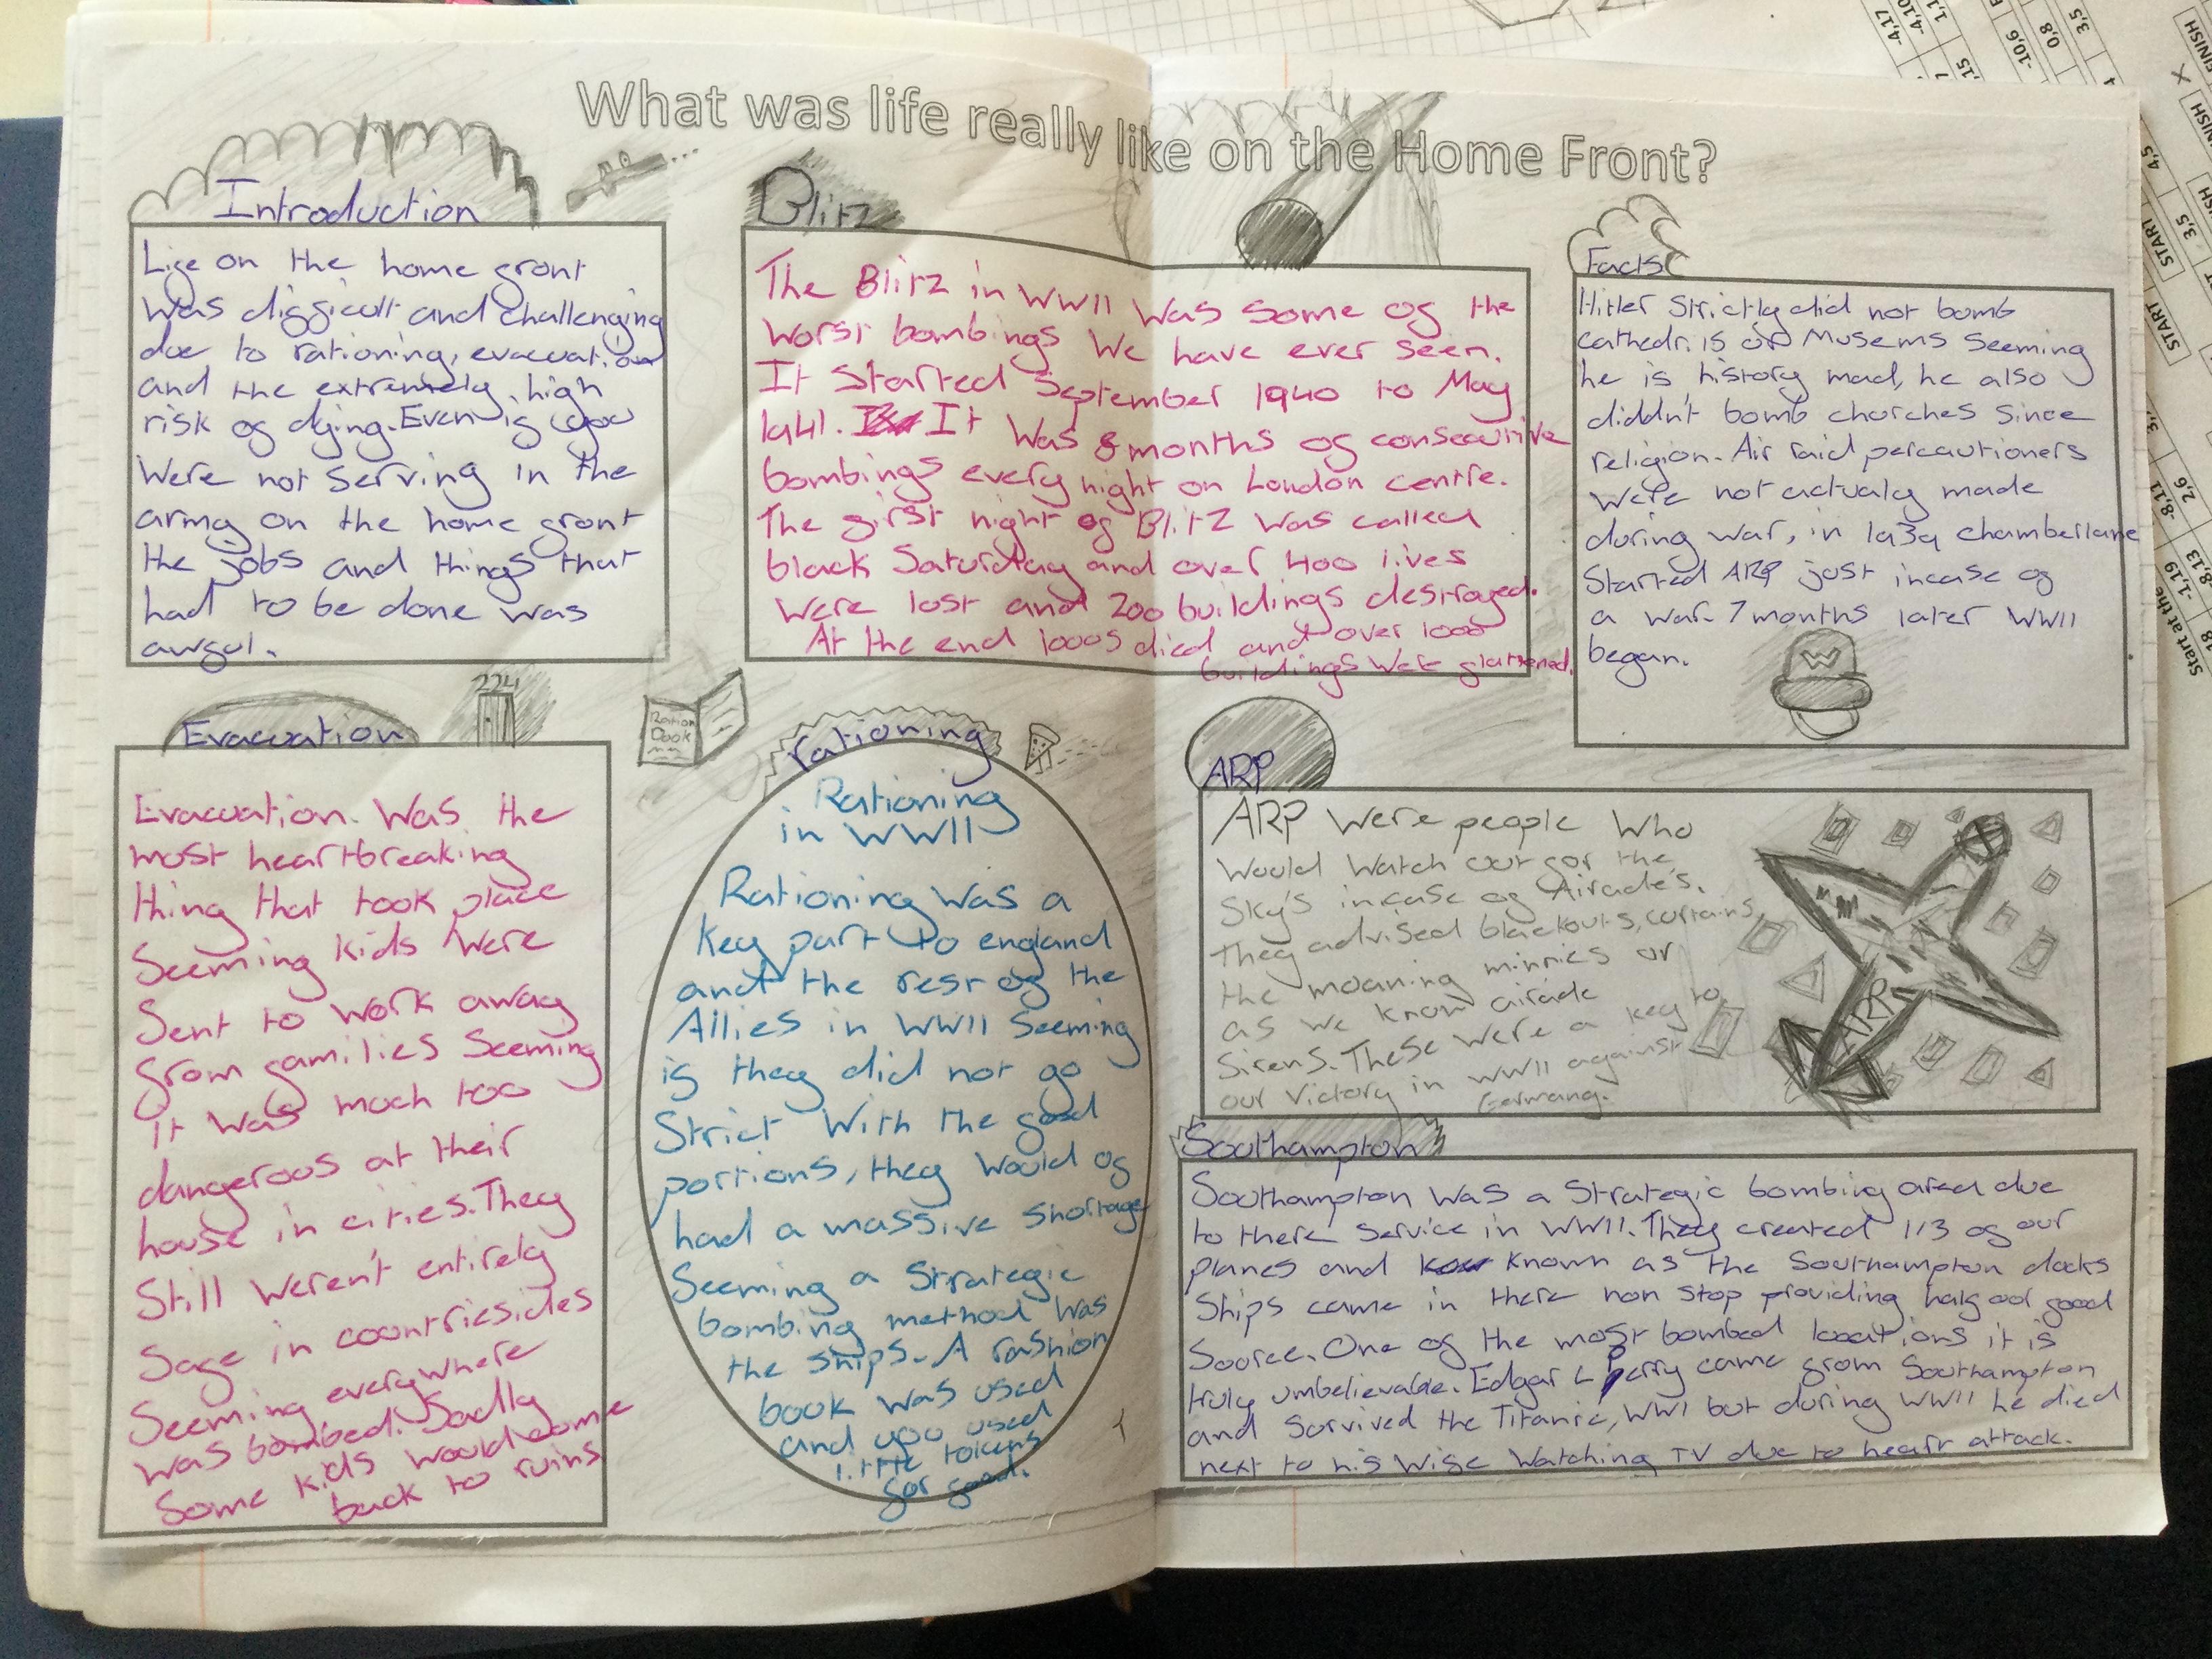 What was life really like on the Home Front?
Introduction
Life on the home front
was difficult and challenging
due to rationing, evacuation
and the extremely high
risk of dying. Even if you
were not serving in the
army on the home front
the jobs and things that
had to be done was
awful.
Blitz
The Blitz in WWII was some of the
worst bombings we have ever seen.
It started September 1940 to May
1941. It was 8 months of consecutive
bombings every night on London centre.
The first night of Blitz was called
black Saturday and over 400 lives
were lost and 200 buildings destroyed.
At the end 1000s died and over 1000
buildings were flattened.
Facts
Hitler strictly did not bomb
cathedrils or Musems seeming
he is history mad, he also
diddn't bomb churches since
religion. Air raid percautioners
were not actualy made
during war, in 1939 chamberlane
started ARP just incase of
a war. 7 months later WWII
began.
W
Evacuation
Evacuation was the
most heartbreaking
thing that took place
seeming kids were
sent to work away
from families seeming
it was much too
dangerous at their
house in cities. They
still weren't entirely
safe in countriesides
seeming everywhere
was bombed. Sadly
some kids would come
back to ruins
224
Ration
Book
rationing
Rationing
in WWII
Rationing was a
key part to england
and the rest of the
Allies in WWII seeming
if they did not go
strict with the food
portions, they would of
had a massive shortage
seeming a strategic
bombing method was
the ships. A rashion
book was used
and you used
little tokens
for food.
ARP
ARP were people who
would watch out for the
sky's incase of Airade's.
They advised blackouts, curtains,
the moaning minnies or
as we know airade
sirens. These were a key to
our victory in WWII against
Germany.
ARP
Southampton
Southampton was a strategic bombing area due
to there service in WWII. They created 1/3 of our
planes and known as the Southampton docks
ships came in there non stop providing half our food
source. One of the most bombed locations it is
truly umbelievable. Edgar L Perry came from Southampton
and survived the Titanic, WWI but during WWII he died
next to his wife watching TV due to heart attack.
START
3,5
START
4,5
-8,11
2,6
-8,13
-1,19
Start at the
-4,17
-4,10
-10,6
0,8
3,5